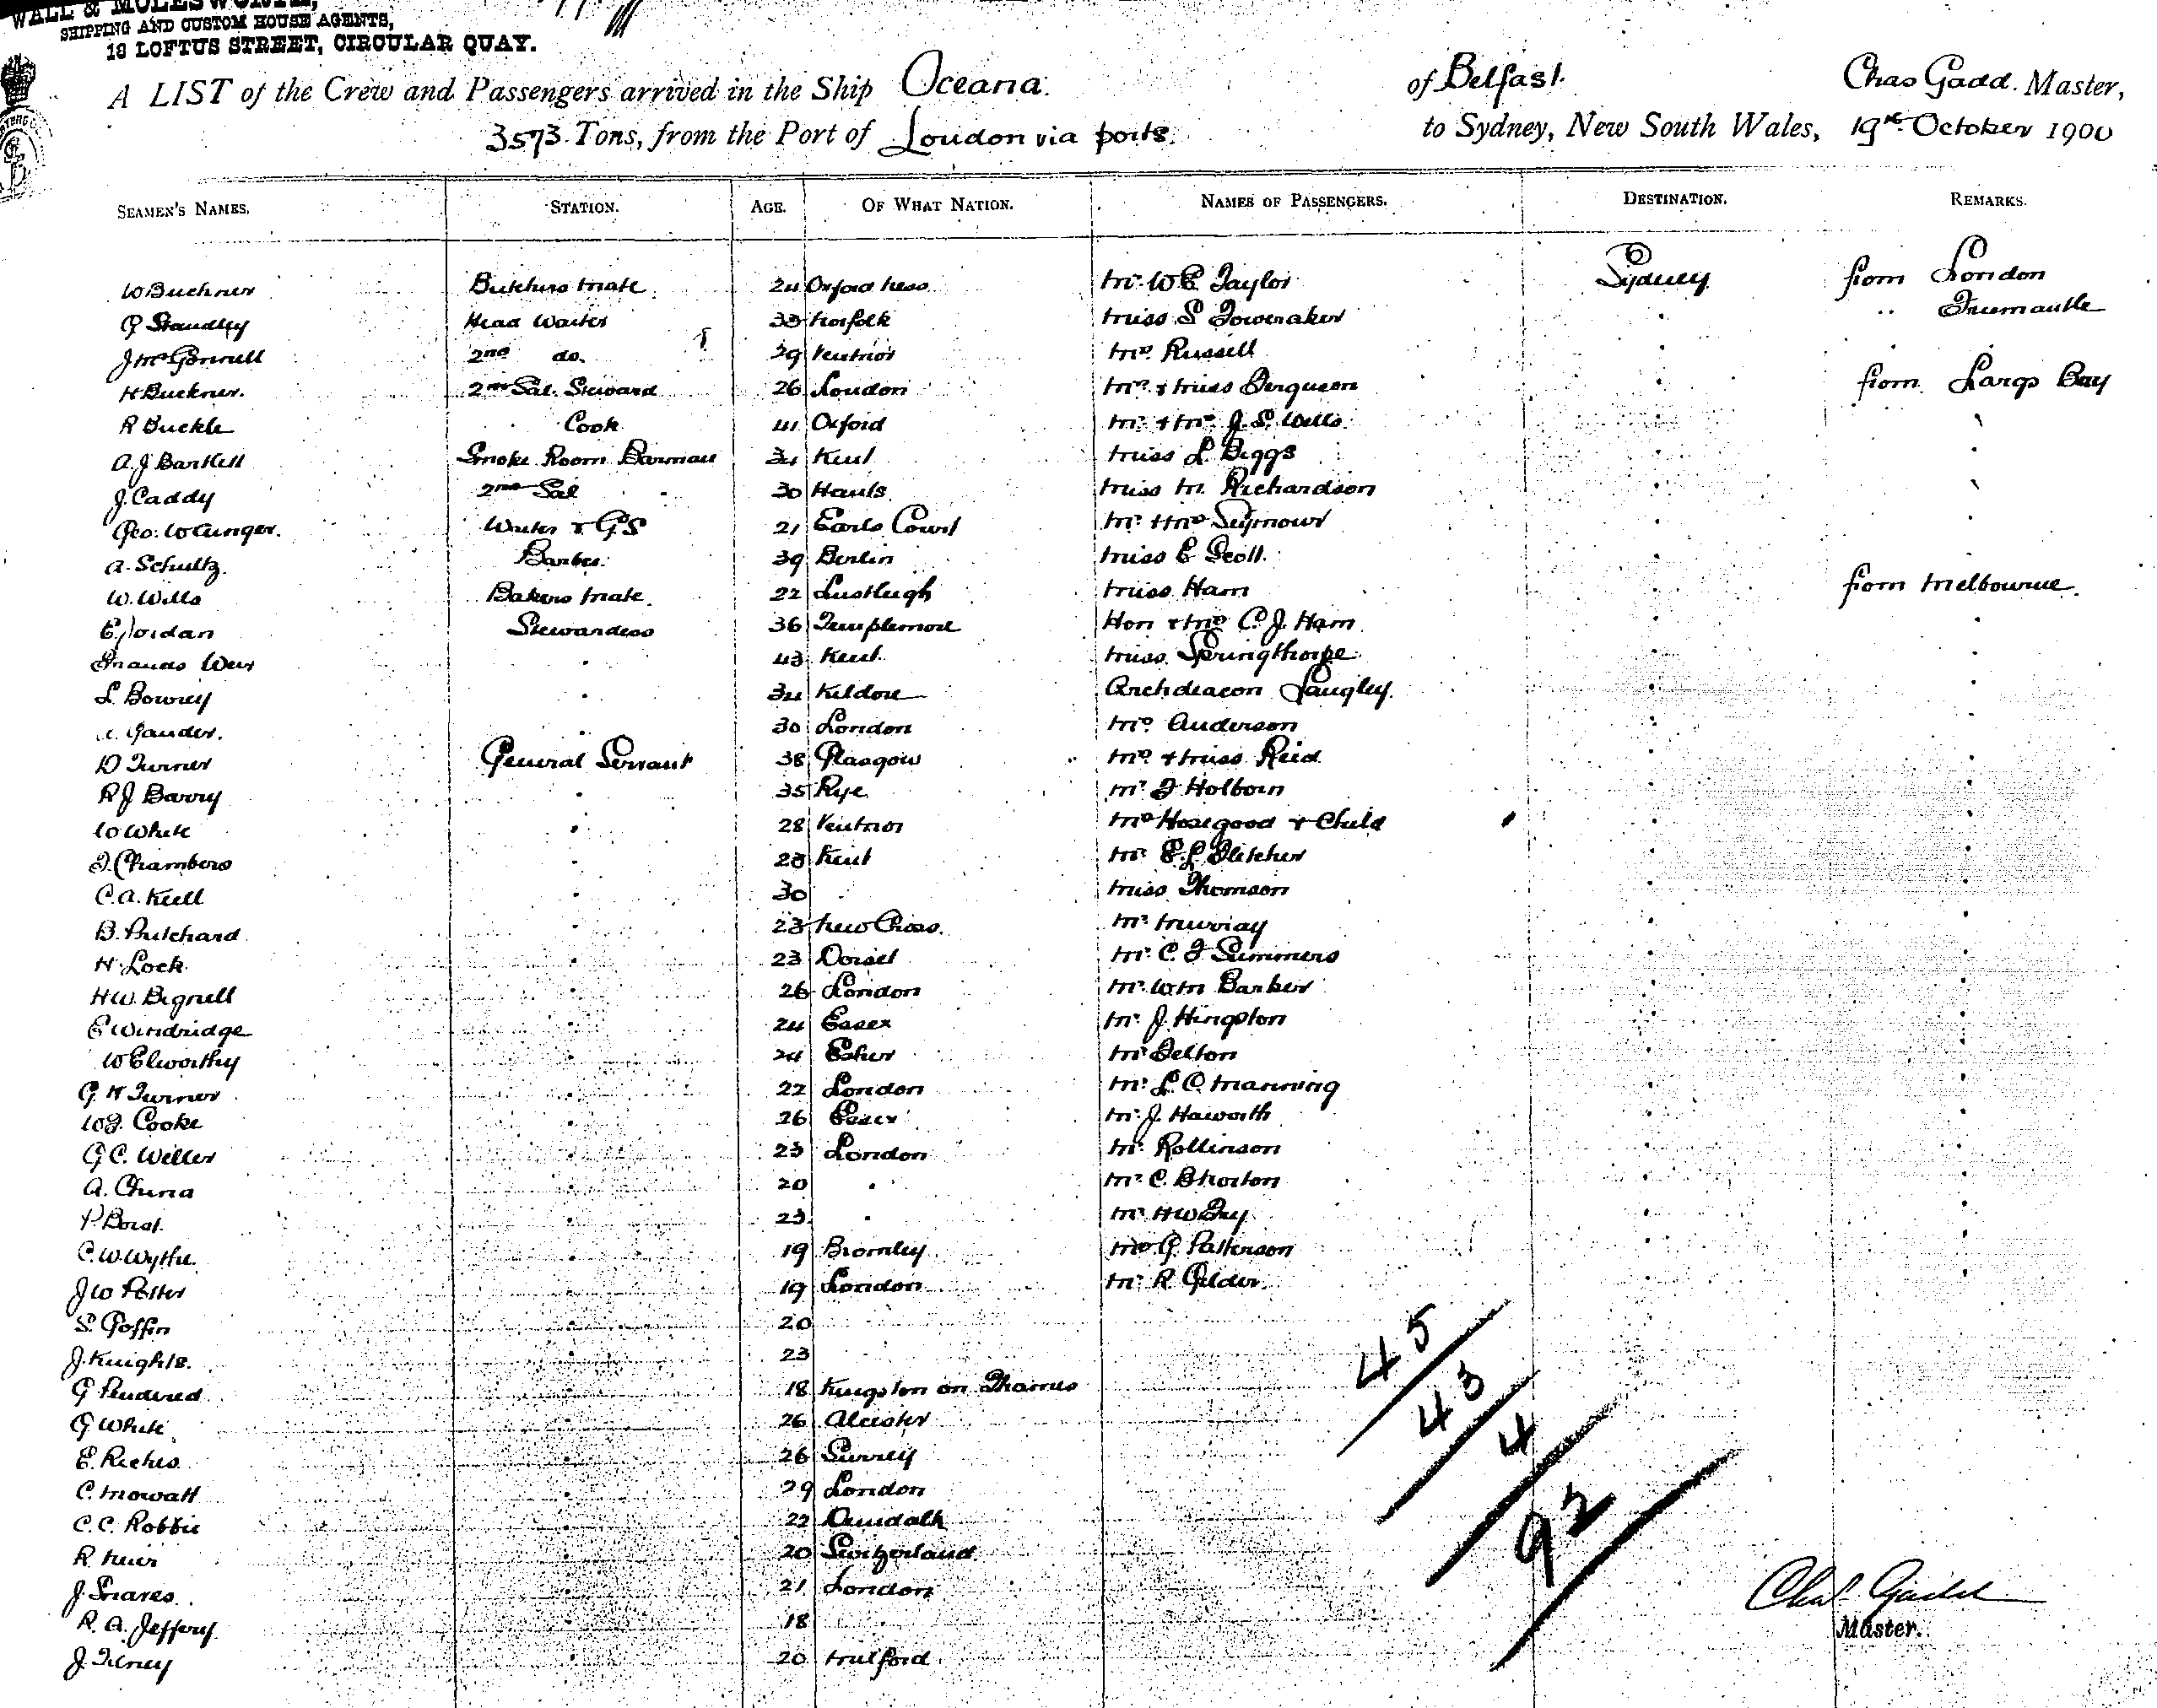 WALL & MOLESWORTH,
SHIPPING AND CUSTOM HOUSE AGENTS,
18 LOFTUS STREET, CIRCULAR QUAY.
A LIST of the Crew and Passengers arrived in the Ship Oceana. of Belfast. Chas Gadd. Master,
3573 Tons, from the Port of London via ports. to Sydney, New South Wales, 19th October 1900
SEAMEN'S NAMES. STATION. AGE. OF WHAT NATION. NAMES OF PASSENGERS. DESTINATION. REMARKS.
W Buchner Butchers Mate. 24 Mr. W E Taylor Sydney from London
G Standley Head Waiter 33 Norfolk Miss S Toweraker " Fremantle
J McGonnell 2nd do. 29 Ventnor Mrs. Russell
H Buckner. 2nd Sal. Steward 26 London Mrs. & Miss Ferguson from Largs Bay
R Buckle Cook 41 Oxford Mr. & Mrs J. S. Wills
A. J Bartlett Smoke Room Barman 34 Kent Miss L. Biggs
J. Caddy 2nd Sal 30 Hants Miss M. Richardson
Geo. Waiter & GS 21 Earls Court Mr. & Mrs Seymour
A. Schultz Barber. 39 Berlin Miss E Scott.
W. Wills Bakers Mate. 22 Lustleigh Miss Ham from Melbourne.
E Jordan Stewardess 36 Templemore Hon & Mrs C. J. Ham
Weir 43 Kent. Miss Springthorpe
L. Bowrey 34 Kildare Archdeacon Langley.
Gander. 30 London Mrs. Anderson
D Turner General Servant 38 Glasgow Mrs. & Miss Reid
R J Barry 35 Rye Mr. F Holborn
W White 28 Ventnor Mrs Hosegood & Child
F. Chambers 23 Kent Mr. E. L. Fletcher
C. A. Kell 30 Miss Thomson
B. Pritchard 23 New Cross. Mr. Murray
H. Lock 23 Dorset Mr. C. F. Summers
H W. Bignell 26 London Mr. Wm Barker
E Windridge 24 Essex Mr. J. Hingston
W Elworthy 24 Esher Mr Felton
G. H Turner 22 London Mr. L. C. Manning
W J. Cooke 26 Essex Mr. J. Haworth
G C. Weller 23 London Mr. Rollinson
A. China 20 " Mr. C. B Horton
Borst. 23 " Mr. H W Fry
C. W. Wythe. 19 Bromley Mrs G. Patterson
J W Potter 19 London Mr. R Gilder.
S. Goffin 20
J. Knights. 23 45
G Pendered 18 Kingston on Thames
G White 26 Alcester 43
E. Riches 26 Surrey 4
C. Mowatt 29 London
C. C. Robbie 22 Dundalk 92
R. 20 Switzerland
J. Snares. 21 London Chas. Gadd
R. A. Jeffery 18 Master.
J. Tilney 20 Mulford